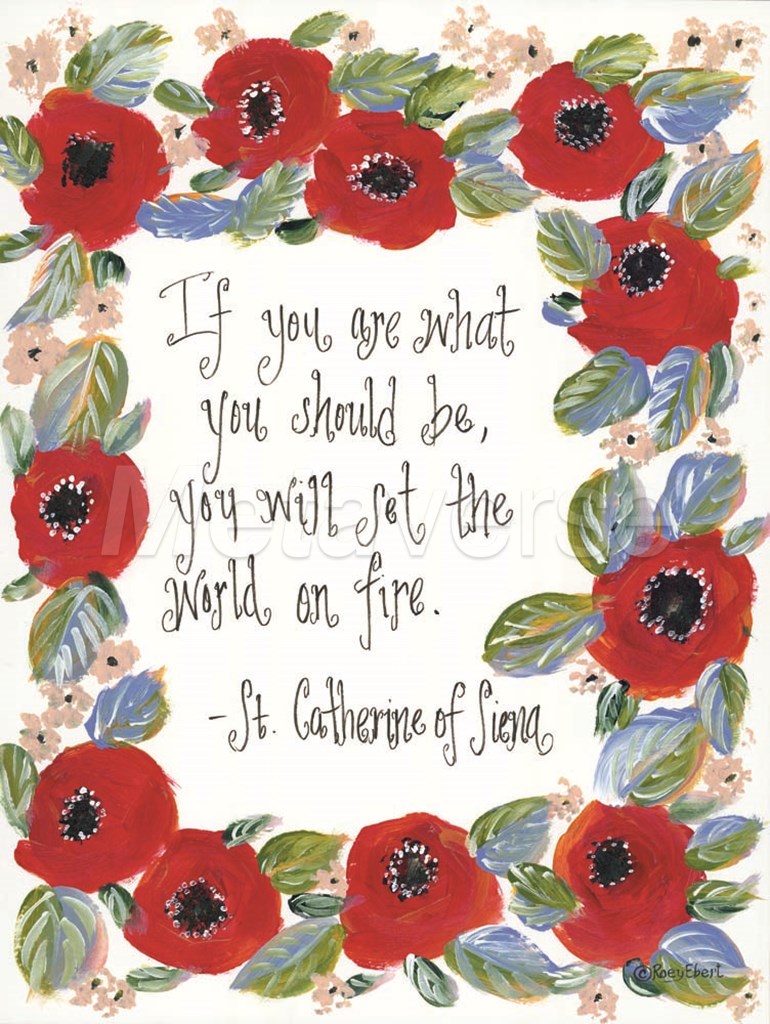 If you are what
you should be,
you will set the
world on fire.
-St. Catherine of Siena
Metaverse
©Roey Ebert